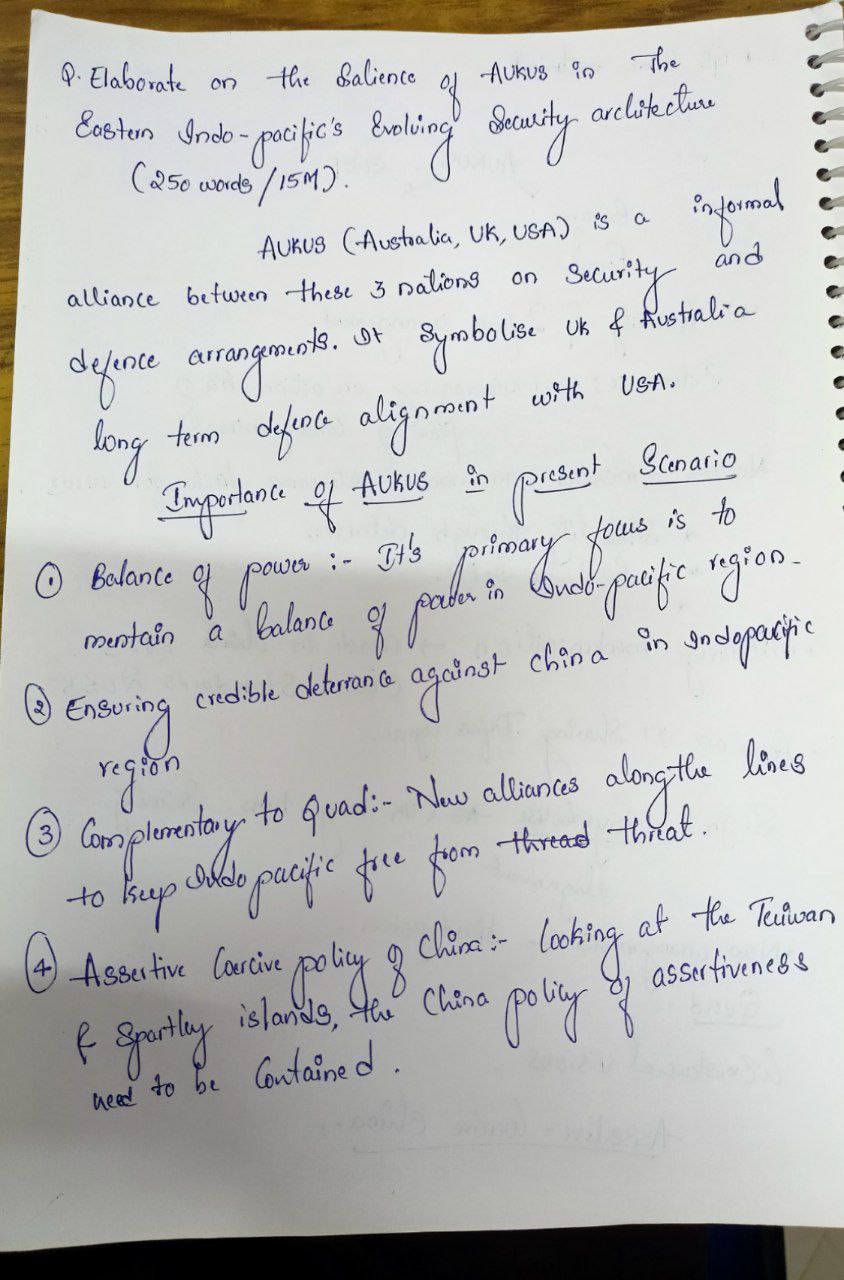 Q. Elaborate on the Salience of AUKUS in The
Eastern Indo-pacific's Evolving Security architecture
(250 words/15M).
AUKUS (Australia, UK, USA) is a informal
alliance between these 3 nations on Security and
defence arrangements. It Symbolise UK & Australia
long term defence alignment with USA.
Importance of AUKUS in present Scenario
① Balance of power :- It's primary focus is to
mentain a balance of power in Indo-pacific region.
② Ensuring credible deterrance against China in Indopacific
region
③ Complementary to Quad:- New alliances along the lines
to keep Indo pacific free from thread threat.
④ Assertive Coercive policy of China :- looking at the Taiwan
& Spartley islands, the China policy of assertiveness
need to be Contained.